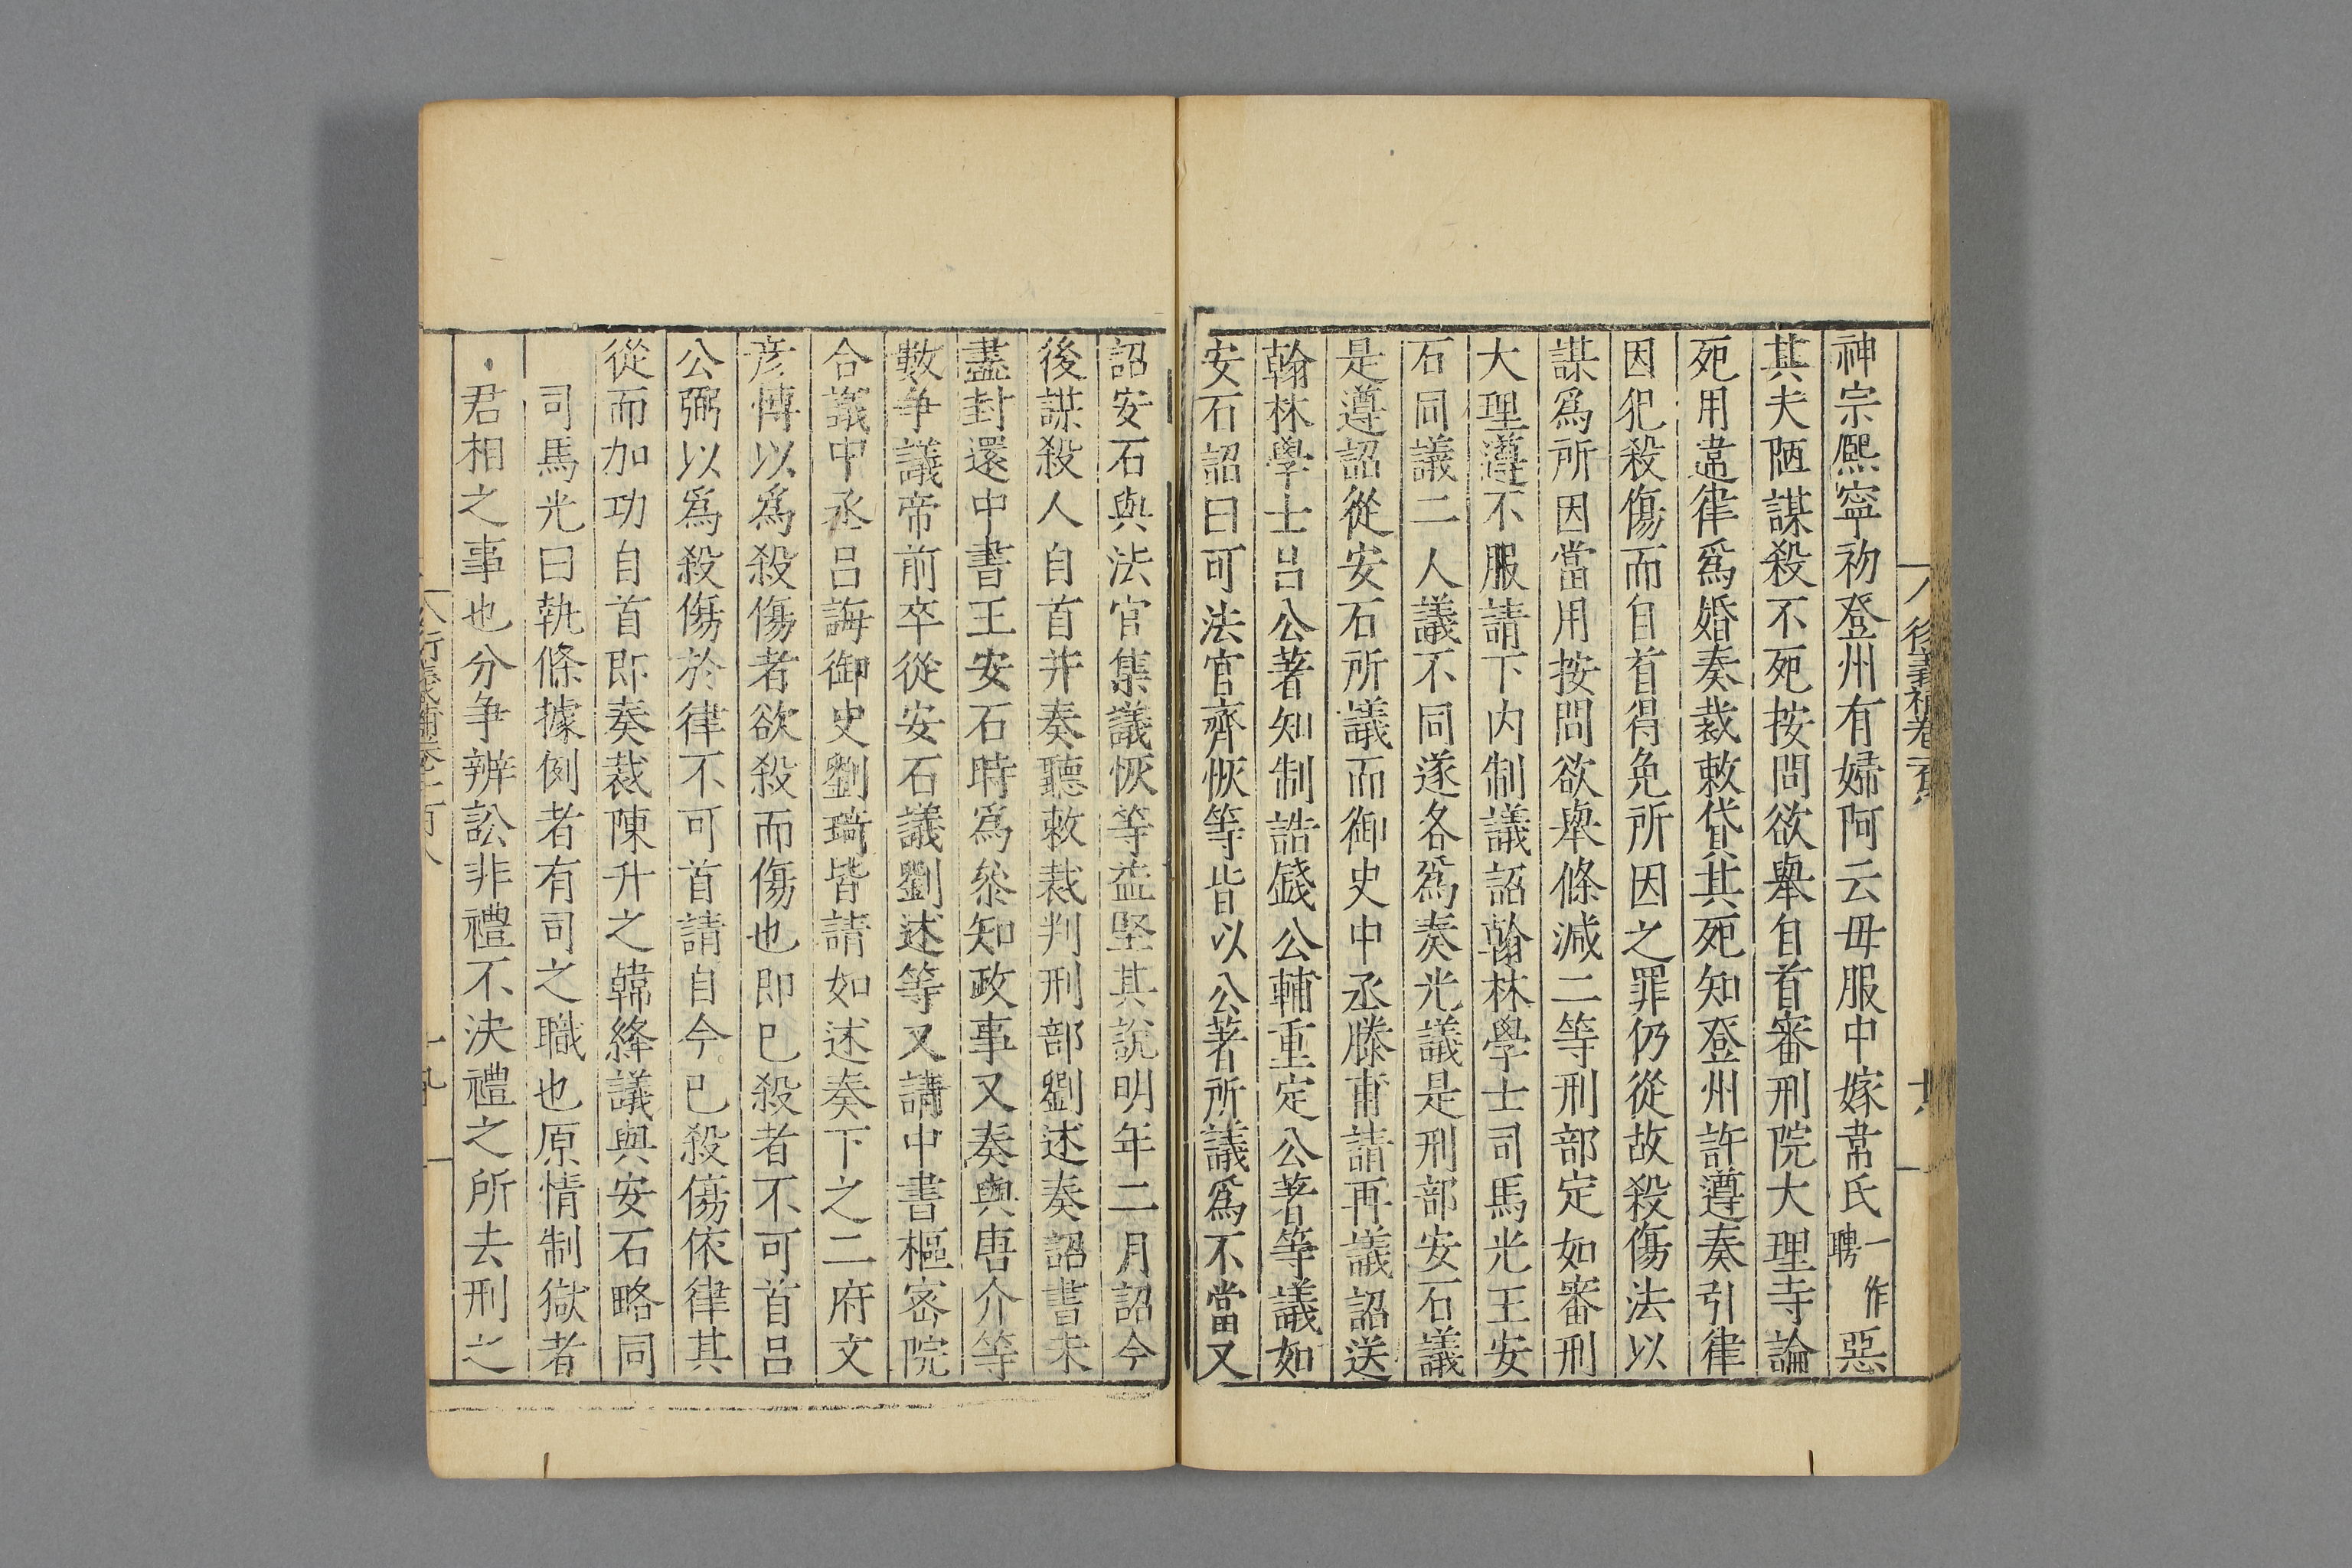 神宗熙寧初登州有婦阿云毋服中嫁常氏一作聘惡
其夫陋謀殺不死按問欲舉自首審刑院大理寺論
死用違律爲婚奏裁敕貸其死知登州許遵奏引律
因犯殺傷而自首得免所因之罪仍從故殺傷法以
謀爲所因當用按問欲舉條減二等刑部定如審刑
大理遵不服請下内制議詔翰林學士司馬光王安
石同議二人議不同遂各爲奏光議是刑部安石議
是遵詔從安石所議而御史中丞滕甫請再議詔送
翰林學士呂公著知制誥錢公輔重定公著等議如
安石詔曰可法官齊恢等皆以公著所議爲不當又
詔安石與法官集議恢等益堅其說明年二月詔今
後謀殺人自首并奏聽敕裁判刑部劉述奏詔書未
盡封還中書王安石時爲叅知政事又奏與唐介等
數争議帝前卒從安石議劉述等又請中書樞宻院
合議中丞呂誨御史劉琦皆請如述奏下之二府文
彦博以爲殺傷者欲殺而傷也即已殺者不可首呂
公弼以爲殺傷於律不可首請自今已殺傷依律其
從而加功自首即奏裁陳升之韓絳議與安石略同
司馬光曰執條據例者有司之職也原情制獄者
君相之事也分争辨訟非禮不决禮之所去刑之